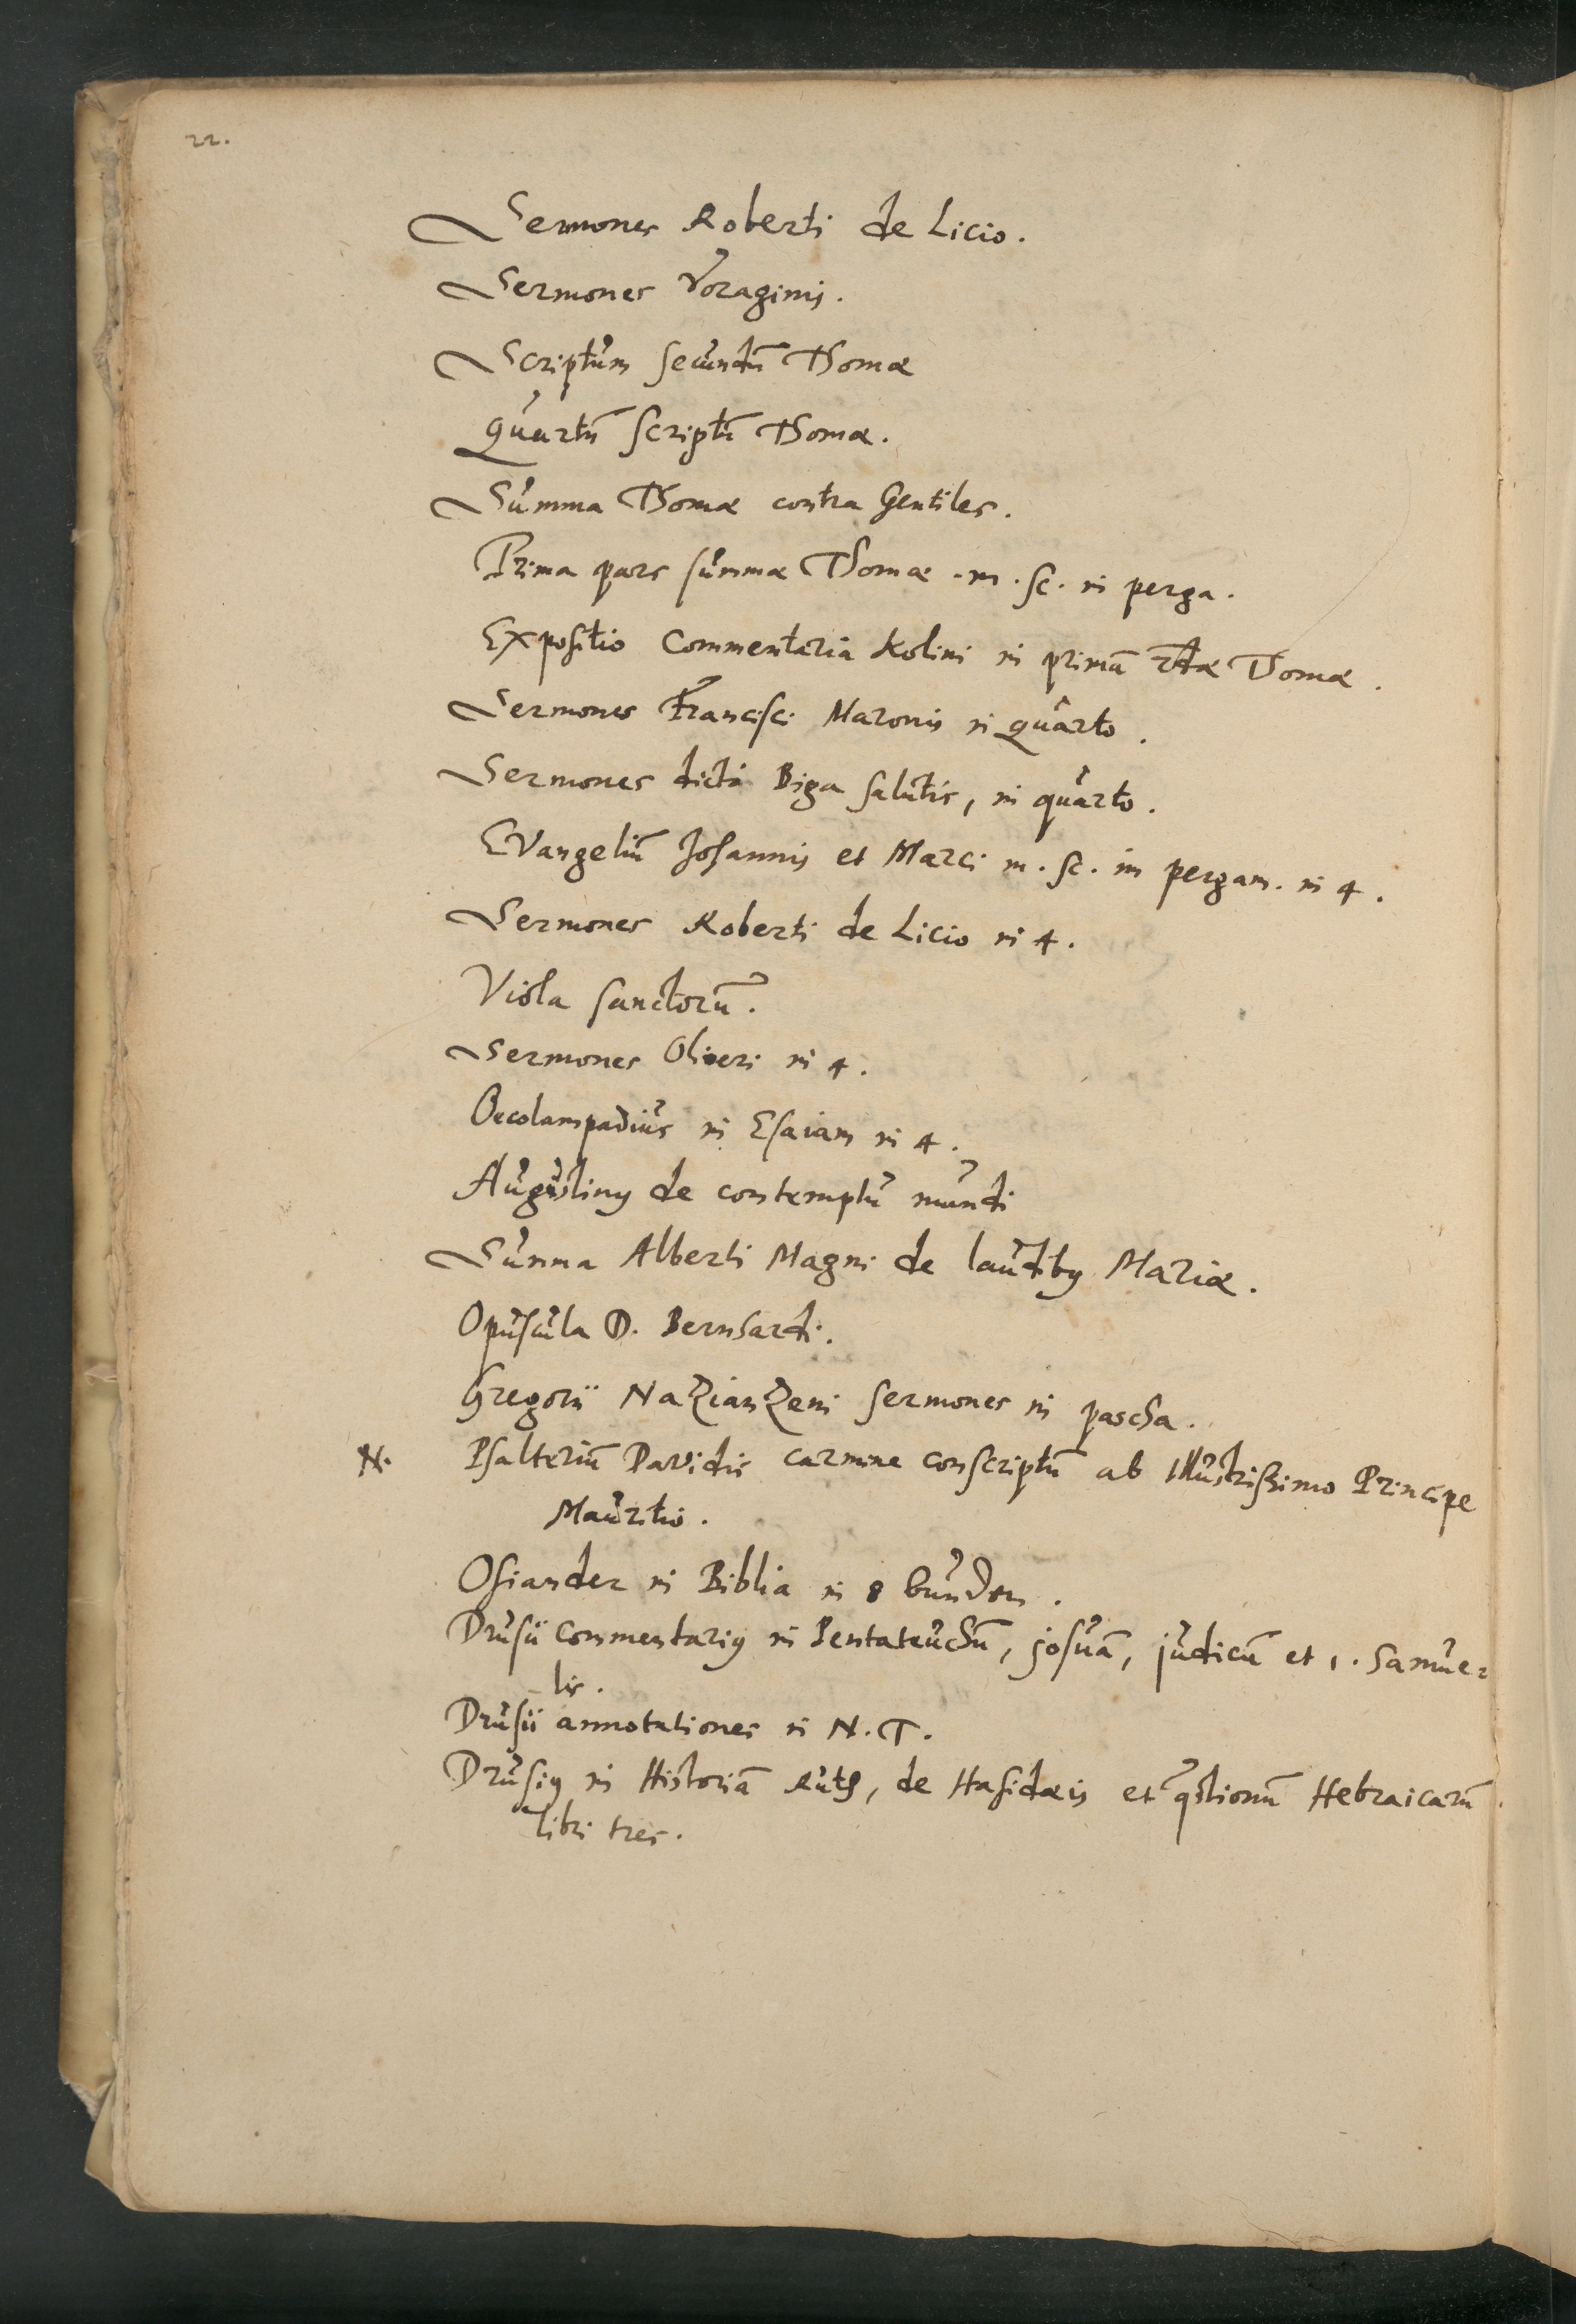 22.
Sermones Roberti de Licio.
Sermones Voraginis.
Scriptum secundū Thomæ
Quartū scriptū Thomæ.
Summa Thomæ contra Gentiles.
Prima pars summæ Thomæ .m.sc. in perga.
Expositio Commentaria Kolini in primā 2dæ Thomæ.
Sermones Francisci Maronis in quarto.
Sermones dicti Biga salutis, in quarto.
Evangeliū Johannis et Marci m.sc. in pergam. in 4.
Sermones Roberti de Licio in 4.
Viola sanctorū.
Sermones Oliveri in 4.
Oecolampadius in Esaiam in 4.
Augustinꝰ de contemptu mundi
Summa Alberti Magni de laudibꝰ Mariæ.
Opuscula D. Bernhardi.
Gregorii Nazianzeni sermones in pascha.
N. Psalteriū Davidis carmine conscriptū ab Illustrissimo Principe
Mauritio.
Osiander in Biblia in 8 bunden.
Drusii Commentariꝰ in Pentateuchū, josuā, judicū et 1. Samue-
lis.
Drusii annotationes in N.T.
Drusiꝰ in Historiā Ruth, de Hasidæis et q̄stionū Hebraicarū
libri tres.